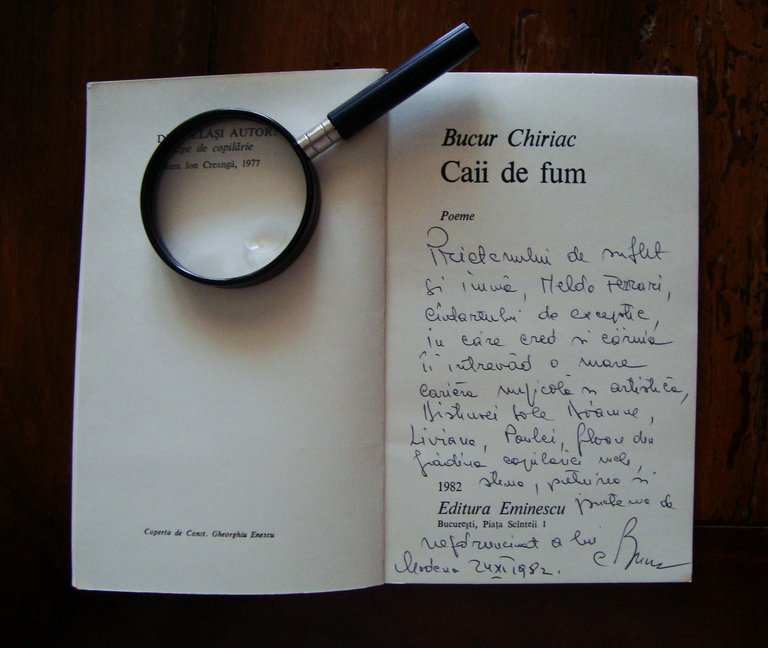 DE ACELAȘI AUTOR:
de copilărie
Ion Creangă, 1977
Coperta de Const. Gheorghiu Enescu
Bucur Chiriac
Caii de fum
Poeme
Prietenului de suflet
și inimă, Meldo Ferrari,
de excepție,
în care cred și căruia
îi întrevăd o mare
carieră muzicală și artistică,
sale
Liviana, floare din
grădina copilăriei mele,
1982 stima, prețuirea și
Editura Eminescu prietenia de
București, Piața Scînteii 1
nezdruncinat a lui
Modena 24 XI 1982.